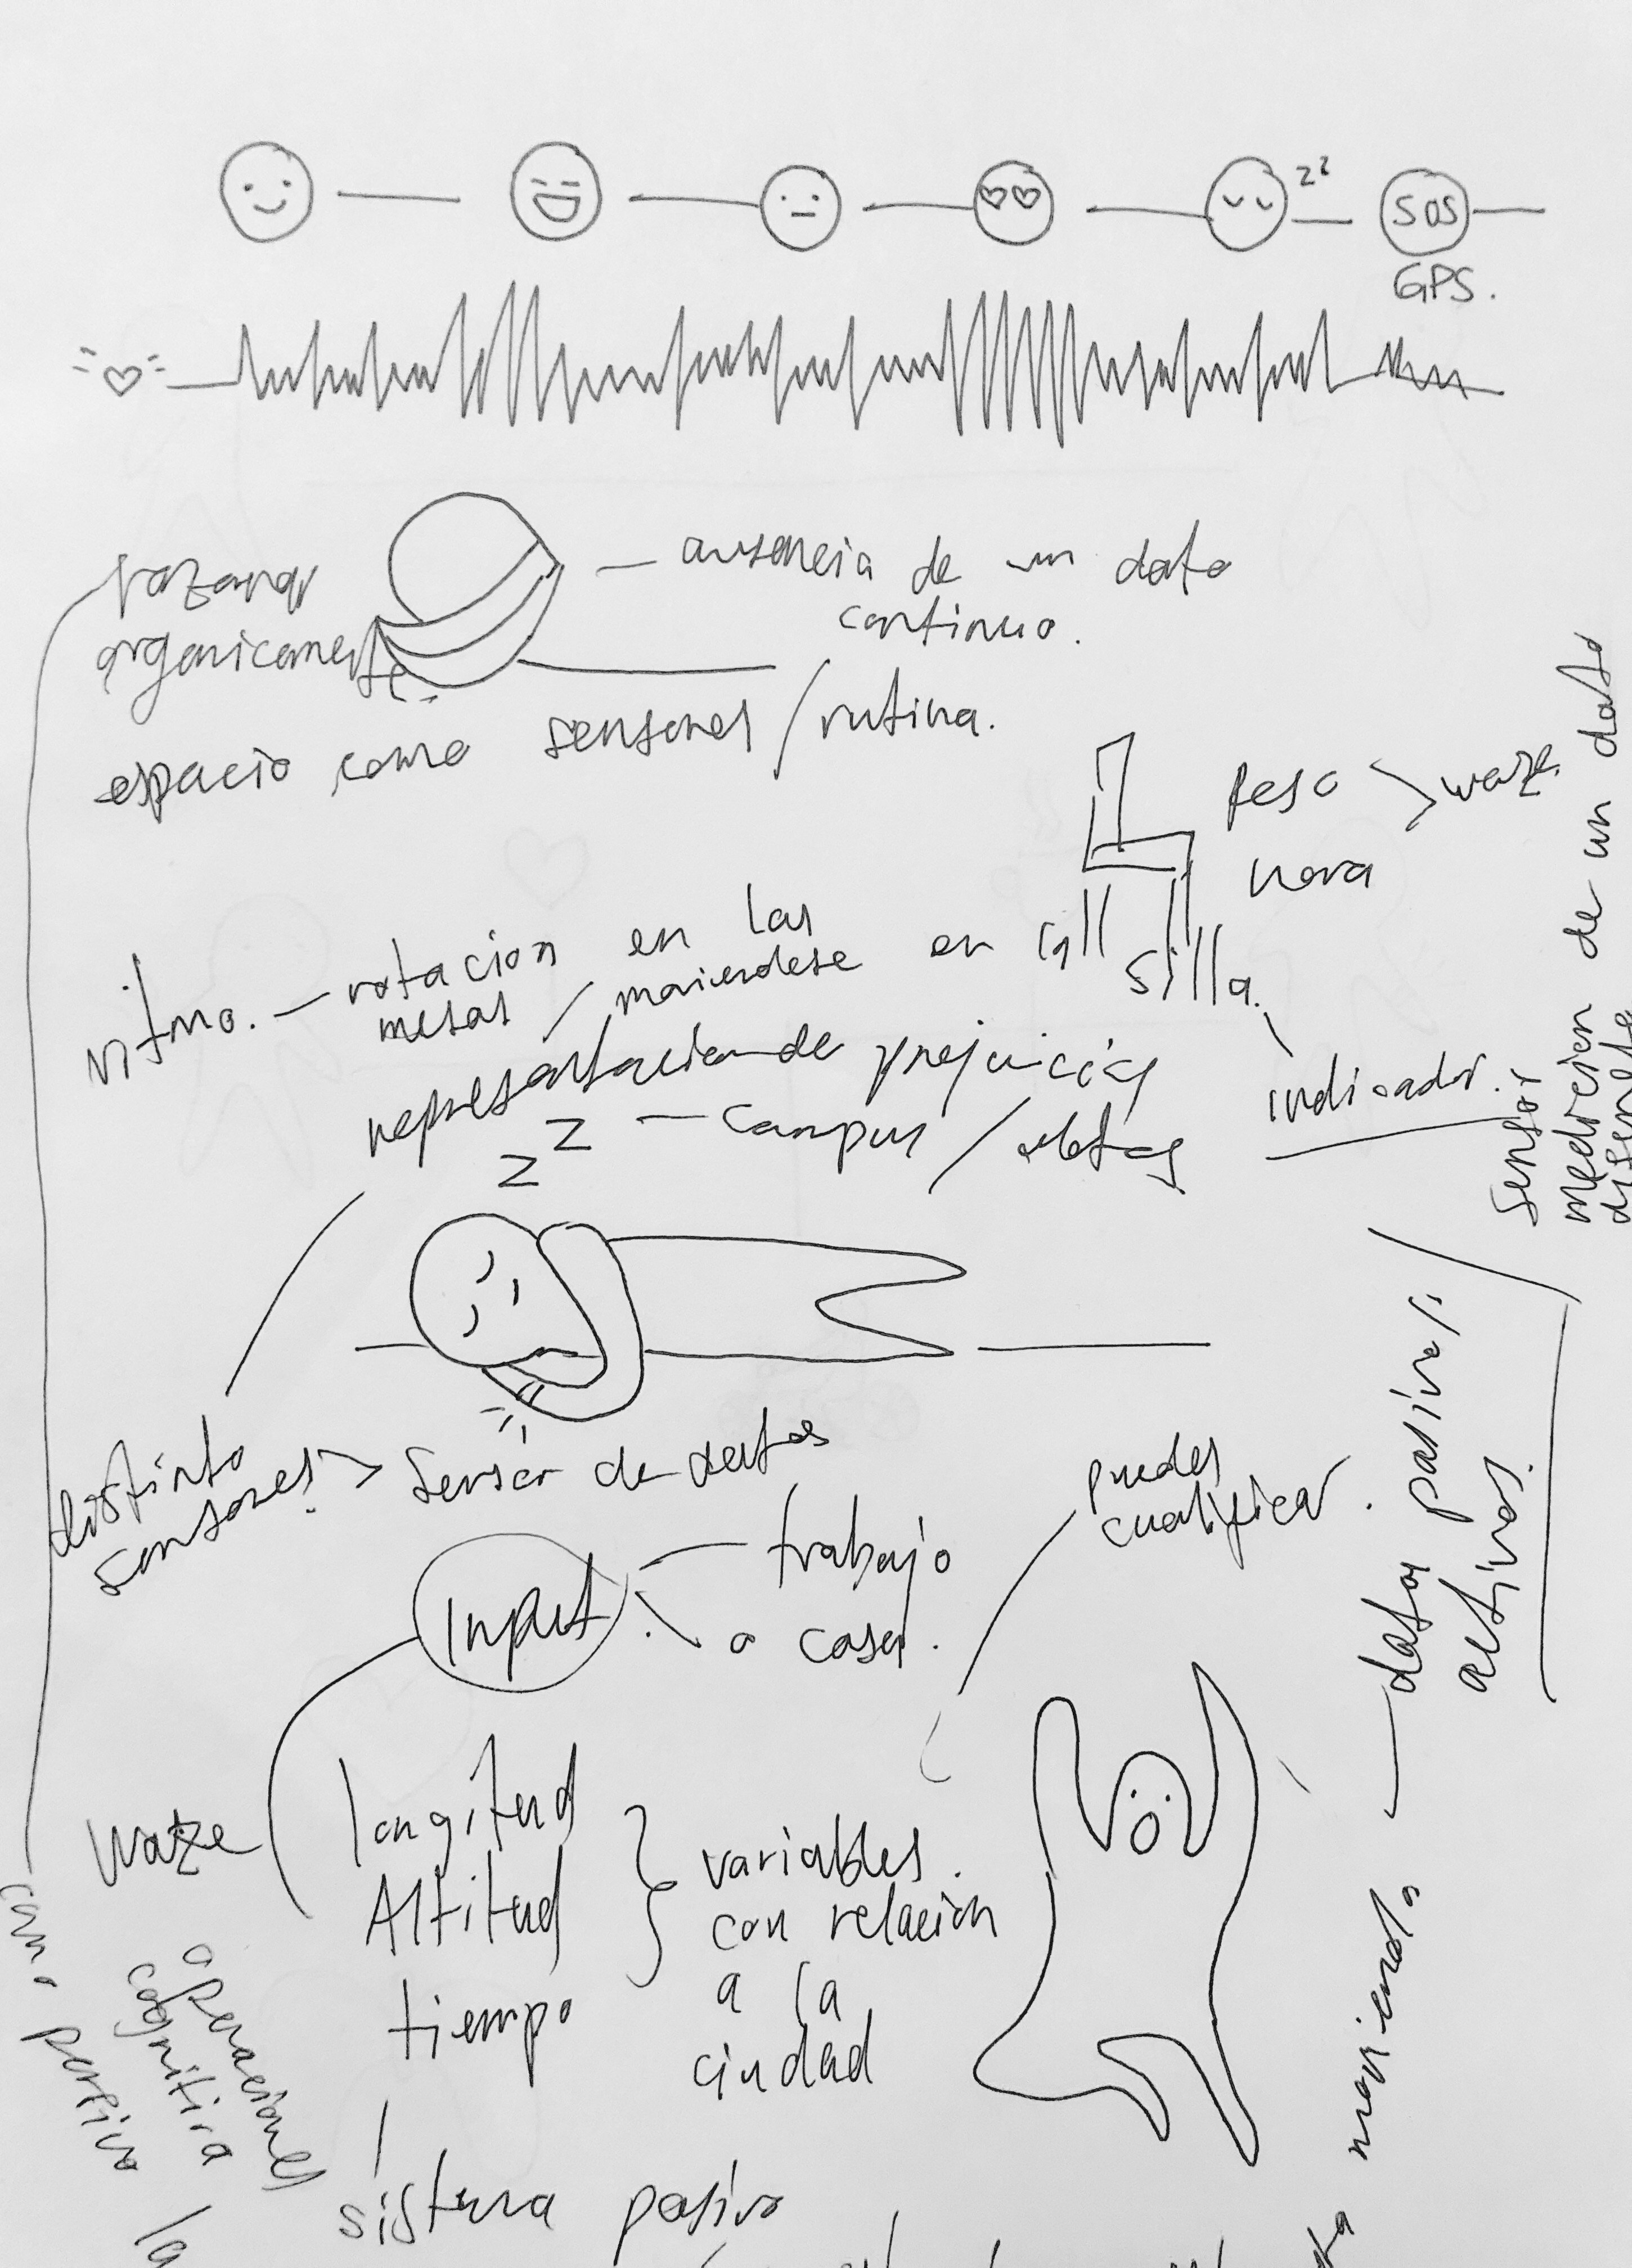 zz
SOS
GPS.
organicamente.
ausencia de un dato
continuo.
espacio como sensores / rutina.
Peso > waze.
hora
ritmo. — rotacion en las
mesas / moviendose en la silla.
representacion de prejuicios
zz — campus /
indicador.
sensor
medicion de un dato
distinto
sensores. > Sensor de datos
puedes
cualificar.
datos pasivos /
activos.
Input — trabajo
o casa.
waze
longitud
Altitud
tiempo
variables
con relacion
a la
ciudad
operaciones
cognitiva
como
la
moviendo
sistema pasivo